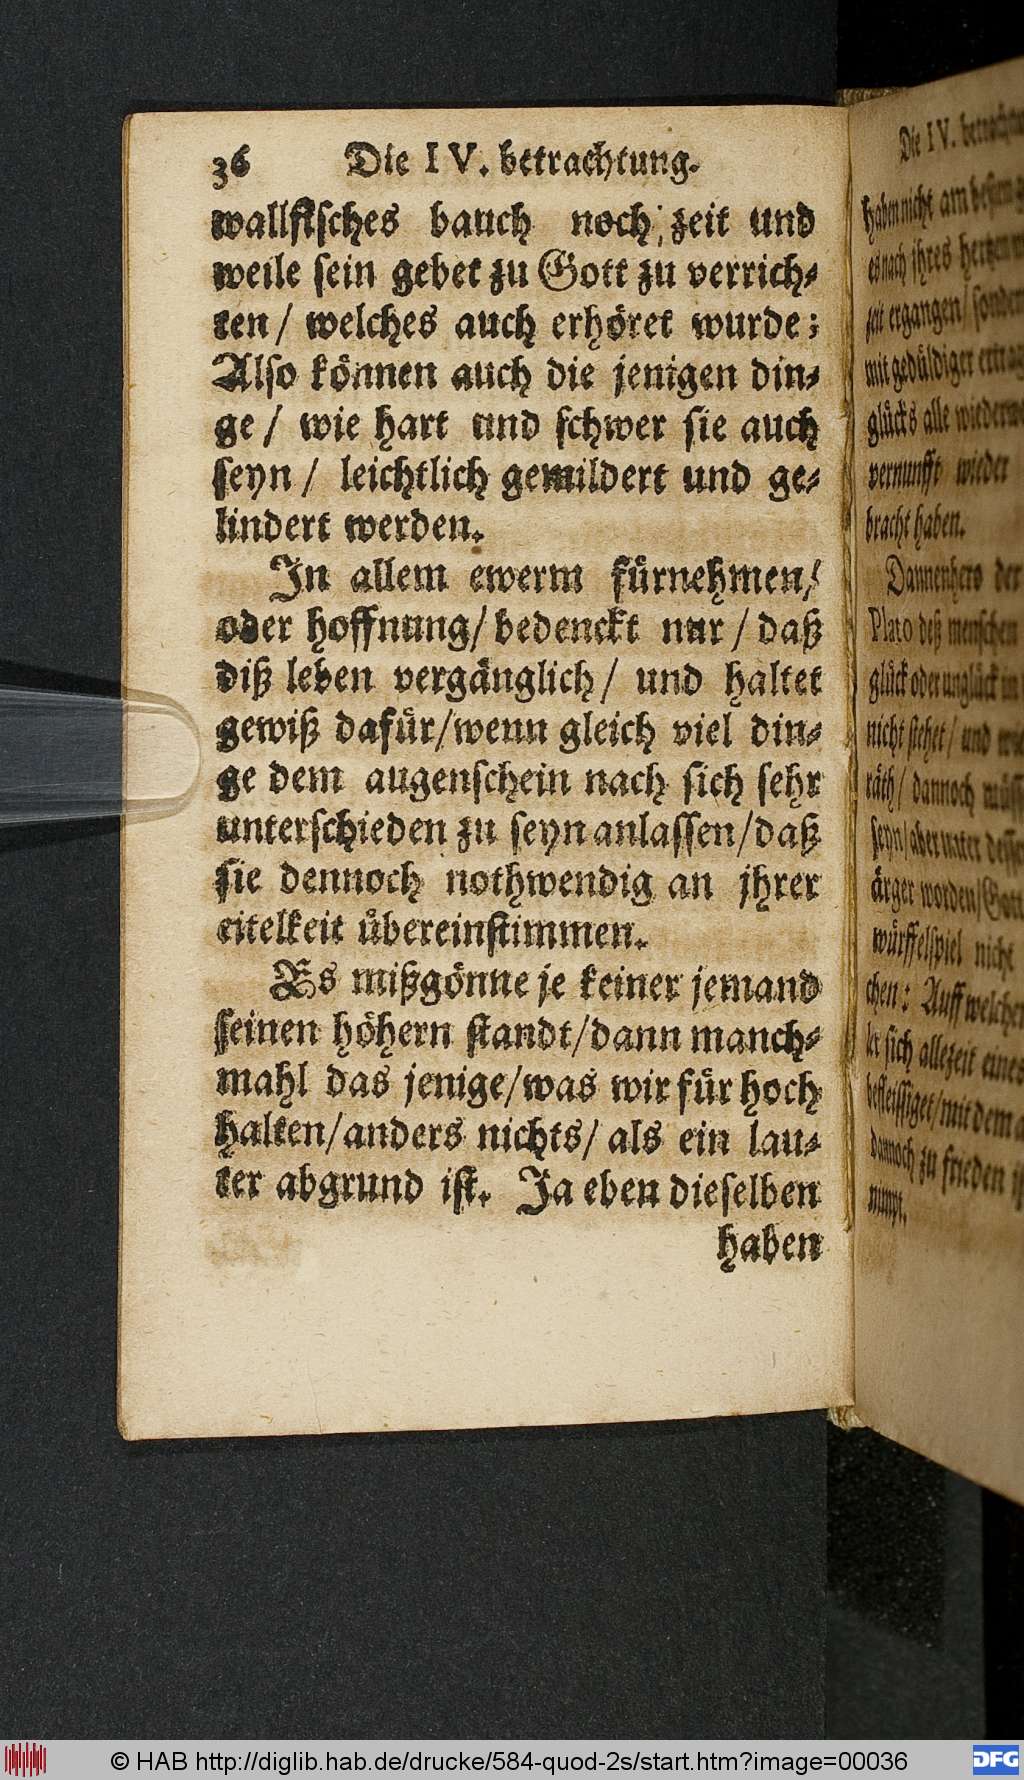 36 Die IV. betrachtung.
wallfisches bauch noch zeit und
weile sein gebet zu Gott zu verrich⸗
ten / welches auch erhöret wurde;
Also können auch die jenigen din⸗
ge / wie hart und schwer sie auch
seyn / leichtlich gemildert und ge⸗
lindert werden.
In allem ewerm fürnehmen/
oder hoffnung/ bedenckt nur / daß
diß leben vergänglich/ und haltet
gewiß dafür/wenn gleich viel din⸗
ge dem augenschein nach sich sehr
unterschieden zu seyn anlassen/daß
sie dennoch nothwendig an jhrer
eitelkeit übereinstimmen.
Es mißgönne je keiner jemand
seinen höhern standt/dann manch⸗
mahl das jenige/was wir für hoch
halten/anders nichts/ als ein lau⸗
ter abgrund ist. Ja eben dieselben
haben
Die IV.
haben nicht am
es nach jhres
ergangen/
mit gedüldiger
glücks alle
vernunfft wieder
bracht haben.
Dannenhero der
Plato deß menschen
glück oder unglück
nicht stehet/ und
räth/ dannoch
seyn/aber unter
ärger worden/
würffelspiel nicht
chen: Auff
sich allezeit eines
befleissiget/mit dem
dannoch zu frieden
nimpt.
© HAB http://diglib.hab.de/drucke/584-quod-2s/start.htm?image=00036
DFG